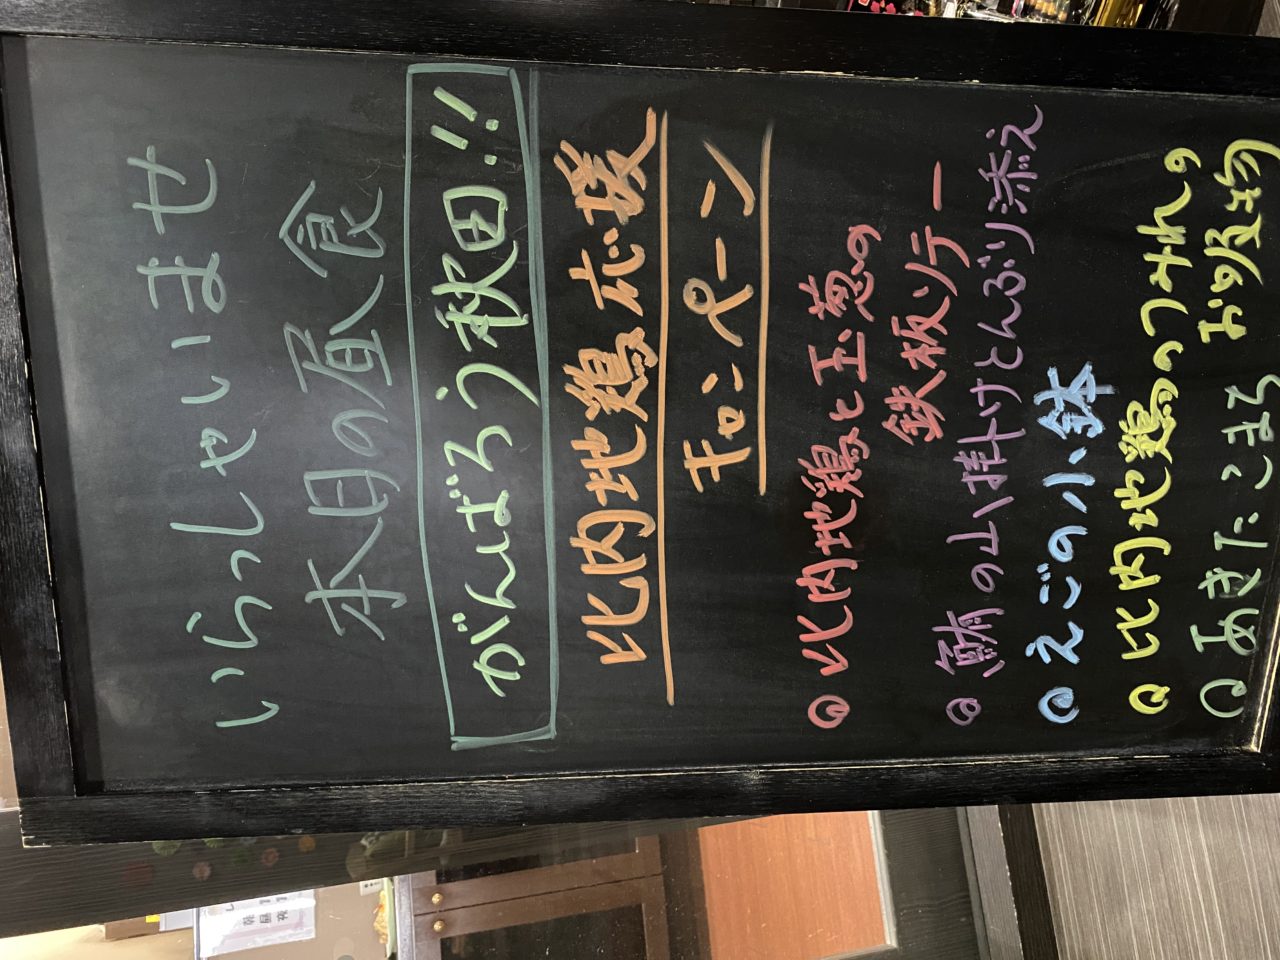 いらっしゃいませ
本日の昼食
がんばろう秋田!!
比内地鶏応援
キャンペーン
◎比内地鶏と玉葱の
鉄板ソテー
◎鮪の山掛けとんぶり添え
◎えごの小鉢
◎比内地鶏のつみれの
お吸物
◎あきたこまち